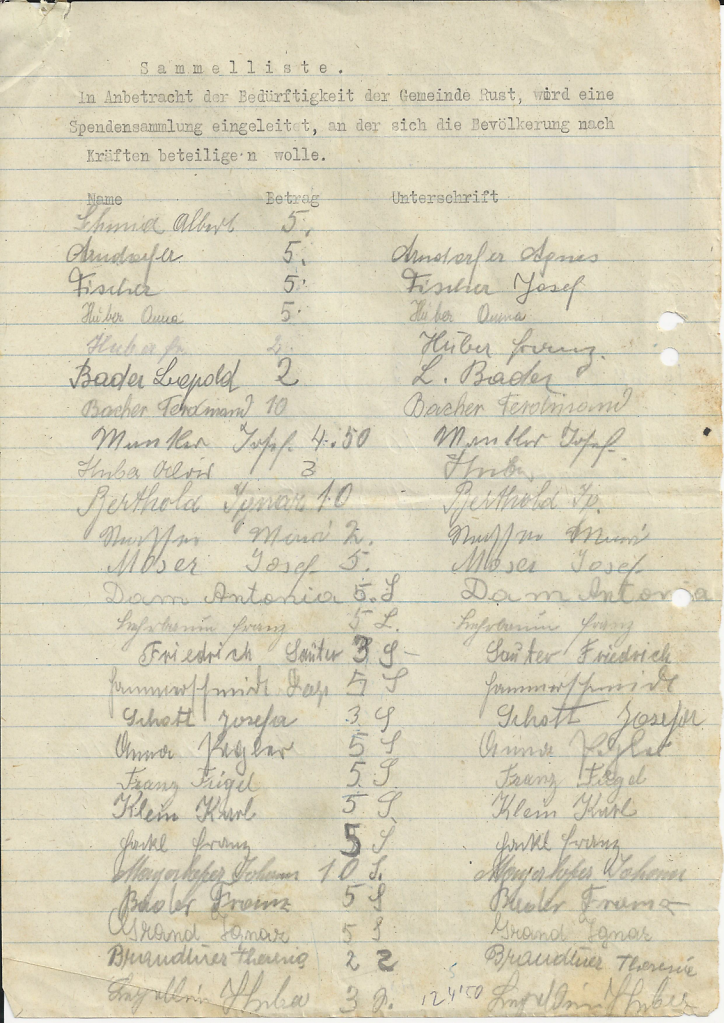 Sammelliste.
In Anbetracht der Bedürftigkeit der Gemeinde Rust, wird eine
Spendensammlung eingeleitet, an der sich die Bevölkerung nach
Kräften beteilige'n wolle.
Name Betrag Unterschrift
Schmid Albert 5.
Arndorfer 5. Arndorfer Agnes
Fischer 5. Fischer Josef
Huber Anna 5. Huber Anna
Huber fr. 2. Huber franz.
Bader Leopold 2 L. Bader
Bacher Ferdinand 10 Bacher Ferdinand
Josef. 4.50 Josef.
Huba 3
Berthold Ignaz 10 Berthold Ig.
2.
Moser Josef 5. Moser Josef
Dam Antonia 5. S Dam Antonia
franz 5 franz
Friedrich Sauter 3 S - Sauter Friedrich
Hammerschmidt 5 S Hammerschmidt
Schott Josefa 3 S Schott Josefa
Anna 5 S Anna
Franz Figel 5 S Franz Figel
Klein Karl 5 S. Klein Karl
Hackl franz 5 S Hackl franz
Mayerhofer Johann 10 S. Mayerhofer Johann
Bader Franz 5 S Bader Franz
Grand Ignaz 5 S Grand Ignaz
Brandtner Theresia 2 2 Brandtner Theresia
Huba 3 S. 124'50 Huber